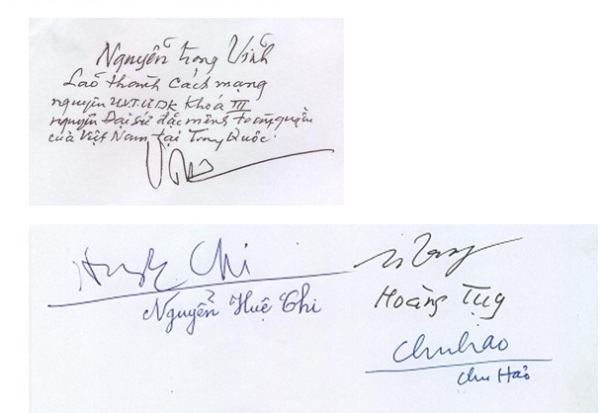 Nguyễn Trọng Vĩnh
Lão thành Cách mạng
nguyên UVTƯĐK Khoá III
nguyên Đại sứ đặc mệnh toàn quyền
của Việt Nam tại Trung Quốc.
Huệ Chi
Nguyễn Huệ Chi
Hoàng Tụy
Chuhao
Chu Hảo